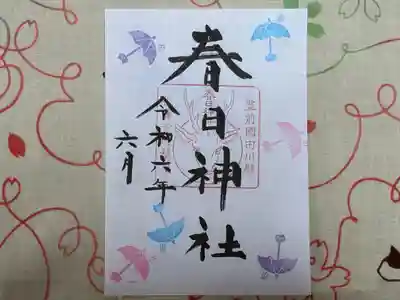 春日神社
令和六年
六月
豊前國田川郡